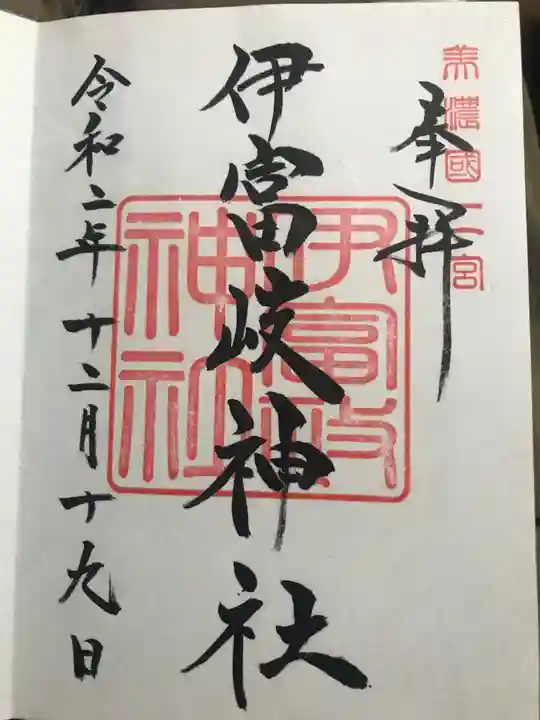 美濃國二宮
奉拝
伊富岐神社
伊富岐
神社
令和二年十二月十九日